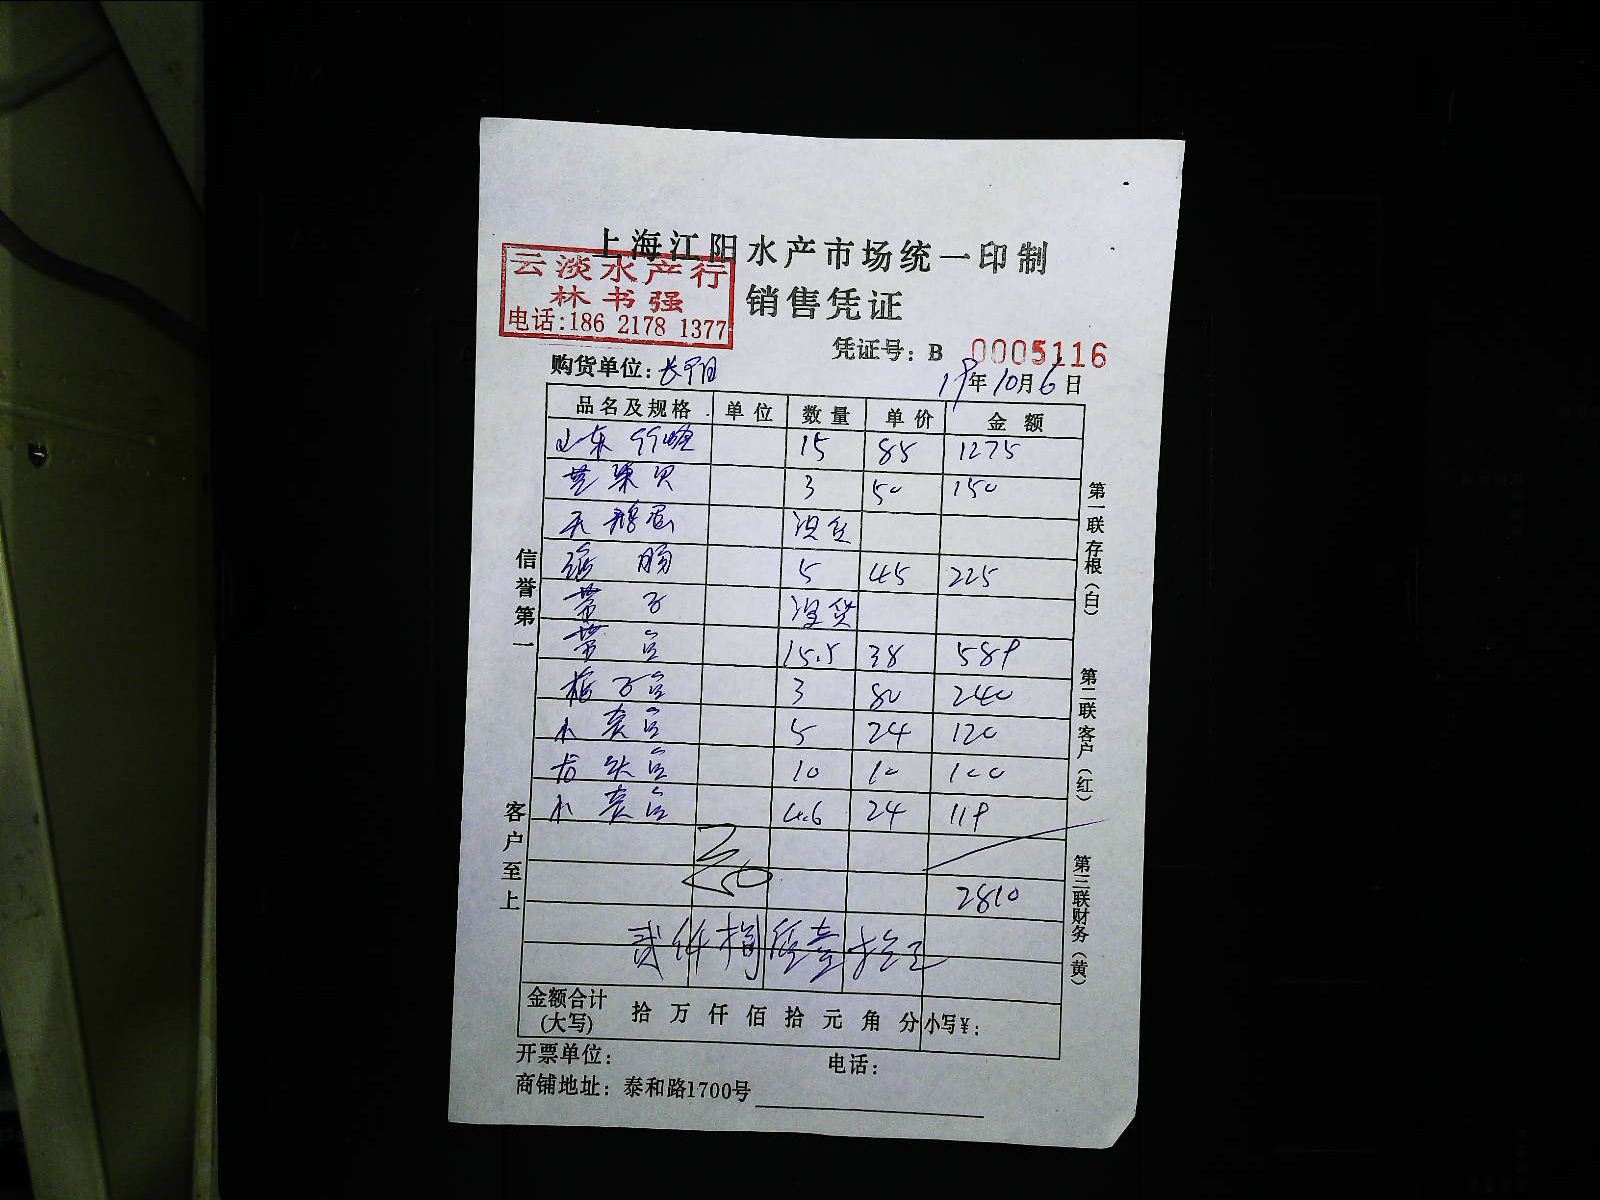 上海江阳水产市场统一印制
云淡水产行
林书强
电话:186 2178 1377
销售凭证
凭证号：B 0005116
购货单位：长阳
19年10月6日
品名及规格 单位 数量 单价 金额
山东 15 85 1275
芝果贝 3 50 150
天鹅蛋 没货
海肠 5 45 225
带子 没货
带鱼 15.5 38 589
梅子鱼 3 80 240
小黄鱼 5 24 120
龙头鱼 10 10 100
小黄鱼 4.6 24 119
2810
贰仟捌佰壹拾元
金额合计(大写) 拾 万 仟 佰 拾 元 角 分 小写¥：
开票单位： 电话：
商铺地址：泰和路1700号
信誉第一
客户至上
第一联 存根（白）
第二联 客户（红）
第三联 财务（黄）